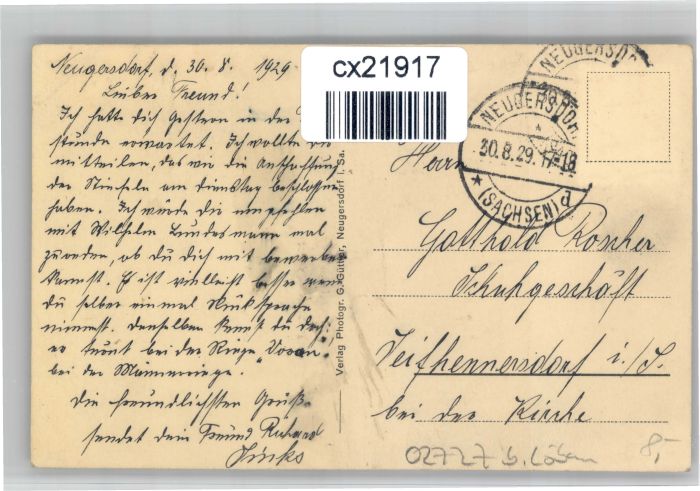 Neugersdorf, d. 30. 8. 1929
Lieber Freund!
Ich hatte dich gestern in der
stunde erwartet. Ich wollte dir
mitteilen, das wir die Anschaffung
der am Dienstag beschlossen
haben. Ich würde dir empfehlen
mit Wilhelm Lindesmann mal
zu reden, ob du dich mit bewerben
kannst. Es ist vielleicht besser wenn
du selber einmal Rüksprache
nimmst. denselben kennst du doch:
er turnt bei der Riege "Voran"
bei der Männerriege.
Die freundlichsten Grüße
sendet dein Freund Richard
cx21917
Verlag Photogr. G. Güttler, Neugersdorf i. Sa.
NEUGERSDORF
NEUGERSDORF
30.8.29.17-18
* (SACHSEN) d
Herrn
Gotthold Roscher
Schuhgeschäft
Seifhennersdorf i./S.
bei der Kirche
02727 b. Löbau
8,-